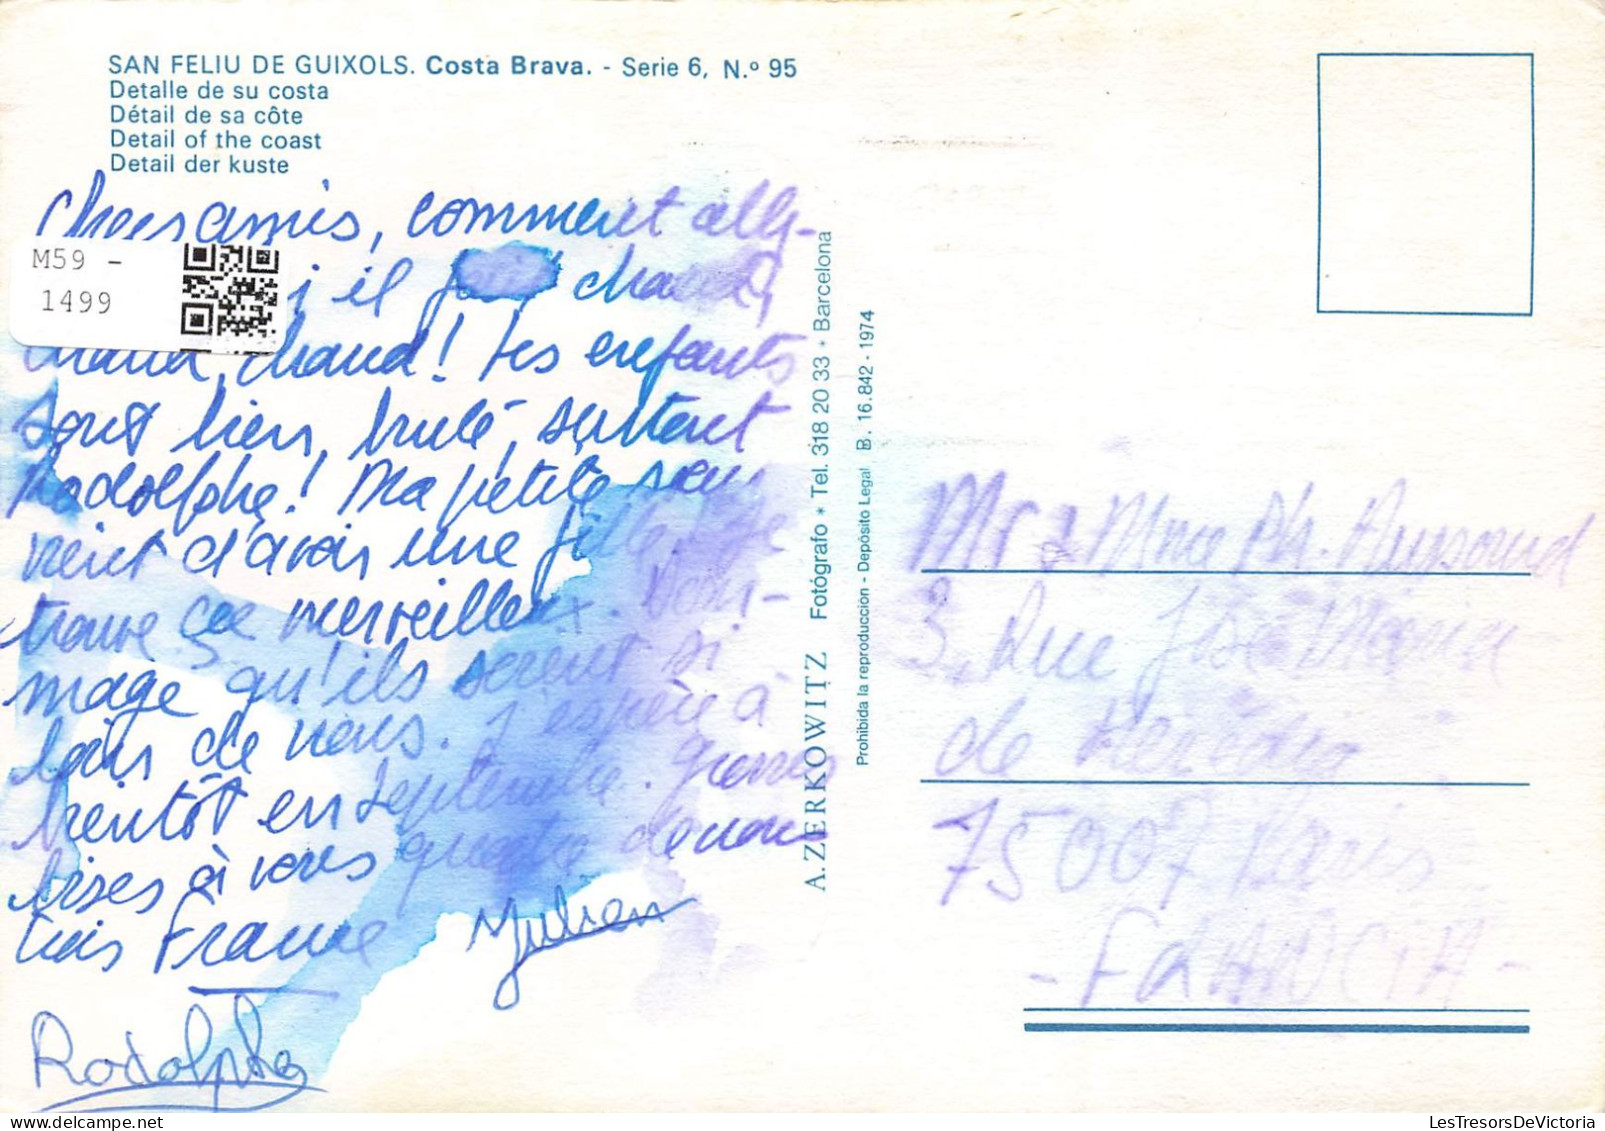 SAN FELIU DE GUIXOLS. Costa Brava. - Serie 6, N.º 95
Detalle de su costa
Détail de sa côte
Detail of the coast
Detail der kuste
Chers amis, comment allez-
il fait chaud,
chaud, chaud! Les enfants
sont bien, brulé, surtout
Rodolphe! Ma petite sœur
vient d'avoir une fille. Je
trouve ça merveilleux. Dom-
mage qu'ils soient si
loin de nous. J'espère à
bientôt en septembre. Grosses
bises à vous quatre de nous
trois France Julien
Rodolphe
M59 -
1499
A. ZERKOWITZ Fotógrafo * Tel. 318 20 33 * Barcelona
Prohibida la reproduccion - Depósito Legal B. 16.842 - 1974
Mr & Mme Ph.
3, Rue José Maria
de Heredia
75007 Paris
- FRANCIA -
LesTresorsDeVictoria.com